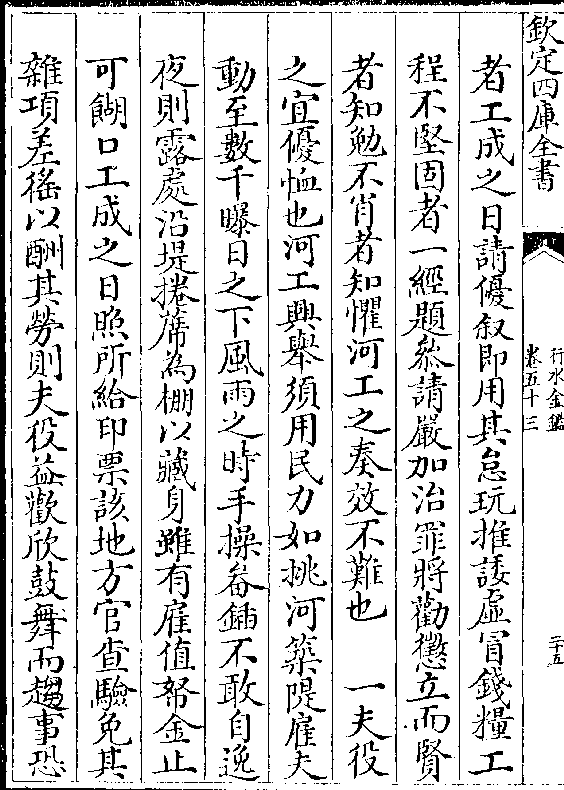 欽定四庫全書
行水金鑑
卷五十三
二十五
者工成之日請優叙即用其怠玩推諉虛冐錢糧工
程不堅固者一經題叅請嚴加治罪將勸懲立而賢
者知勉不肖者知懼河工之奏效不難也　一夫役
之宜優恤也河工興舉須用民力如挑河築隄雇夫
動至數千曝日之下風雨之時手操畚鍤不敢自逸
夜則露處沿堤捲蓆為棚以藏身雖有雇值帑金止
可餬口工成之日照所給印票該地方官查驗免其
雜項差徭以酬其勞則夫役益歡欣鼓舞而趨事恐